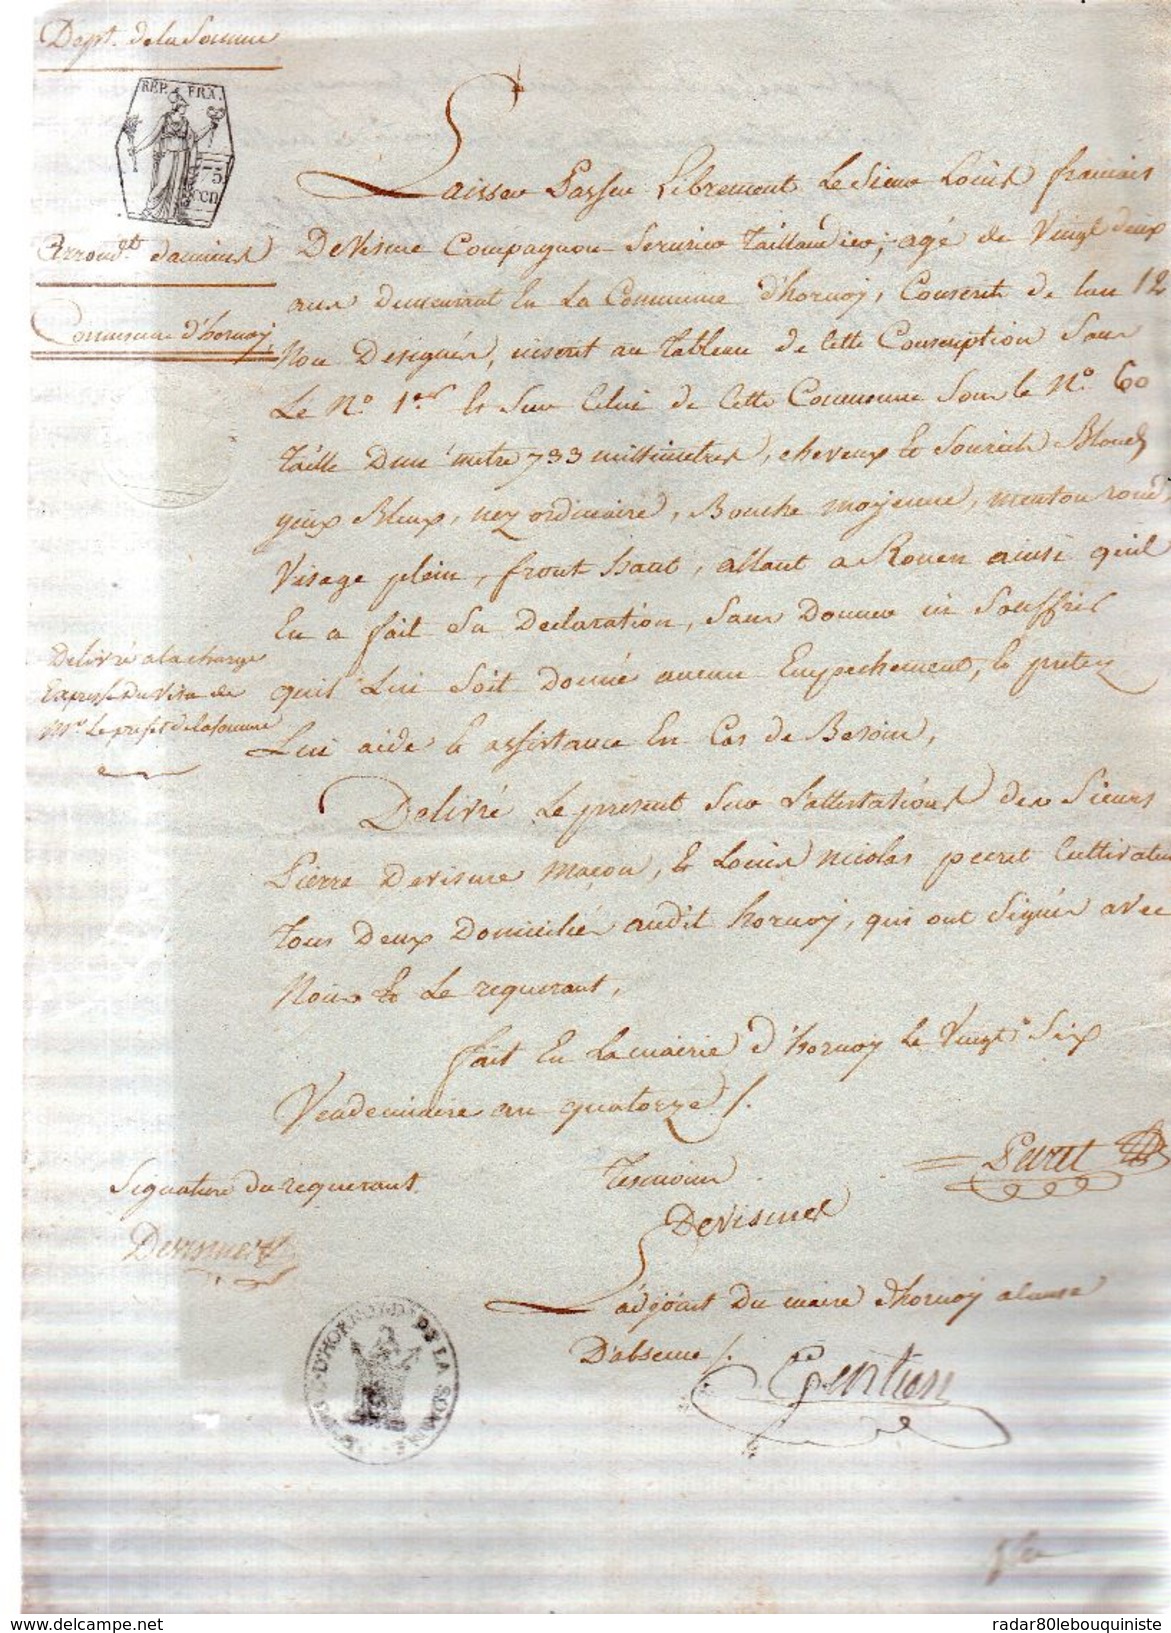 Dept. de la Somme
REP. FRA.
75
CEN
Arrondt. damiens
Commune d'hornoy
Laisser Passer Librement Le Sieur Louis francois
DeVisme Compagnon Serurier taillandier, agé de Vingt deux
ans demeurant En La Commune d'hornoy, Conscrit de lan 12
Non Designés, inscrit au tableau de Cette Conscription Sous
Le No. 1er. Et Sur Celui de Cette Commune Sous le No. 60
taille Dun metre 733 millimetres, cheveux et Sourcils Blonds
yeux Bleux, nez ordinaire, Bouche moyenne, menton rond
Visage plein, front haut, allant a Rouen ainsi quil
En a fait Sa Declaration, Sans Donner ni Souffrir
quil Lui Soit donné aucun Empechement, et pretez
Lui aide et assistance En Cas de Besoin,
Delivré a la charge
Expresse du Visa de
Mr. Le prefet de la Somme
Delivré Le present Sur L'attestations des Sieurs
Pierre Devisme Maçon, et Louis nicolas pecret Cultivateur
tous Deux Domiciliés audit hornoy, qui ont Signés avec
Nous Et Le requerant,
fait En La mairie d'hornoy Le Vingt Six
Vendemiaire an quatorze /.
Signature du requerant
temoins
DeVismes
Devismes
L'adjoint Du maire d'hornoy a Cause
D'absence /.
D'HORNOY DEP. DE LA SOMME
radar80lebouquiniste.delcampe.net
radar80lebouquiniste